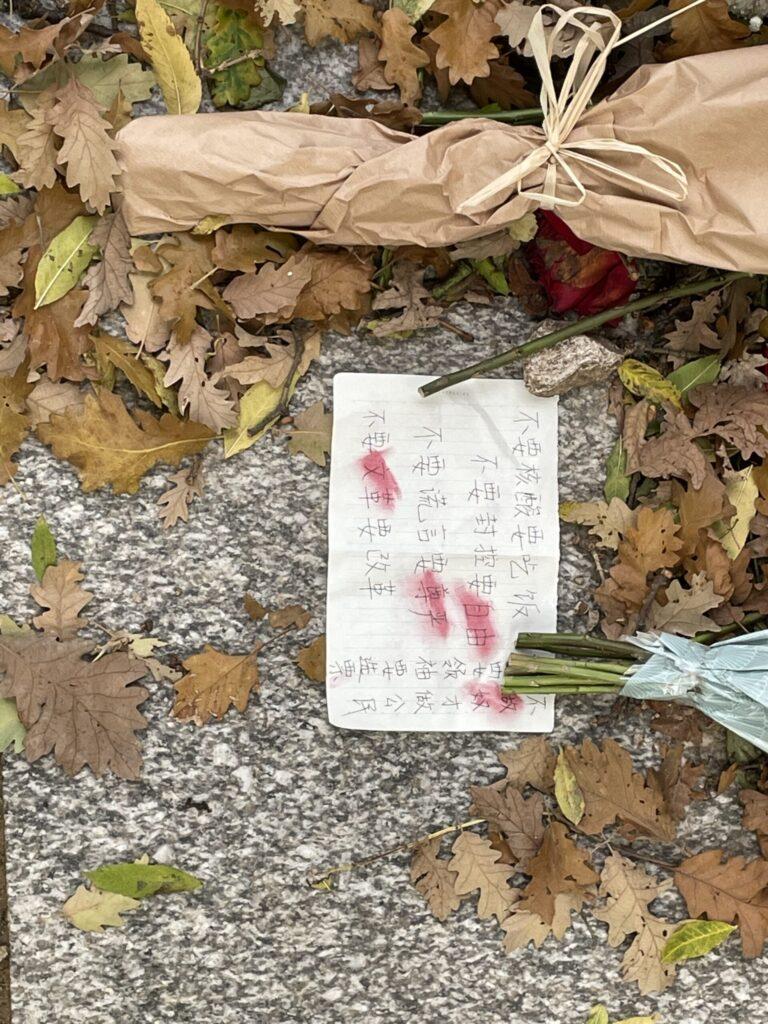 不要核酸要吃饭
不要封控要自由
不要谎言要尊严
不要文革要改革
要领袖要选票
不做奴才做公民